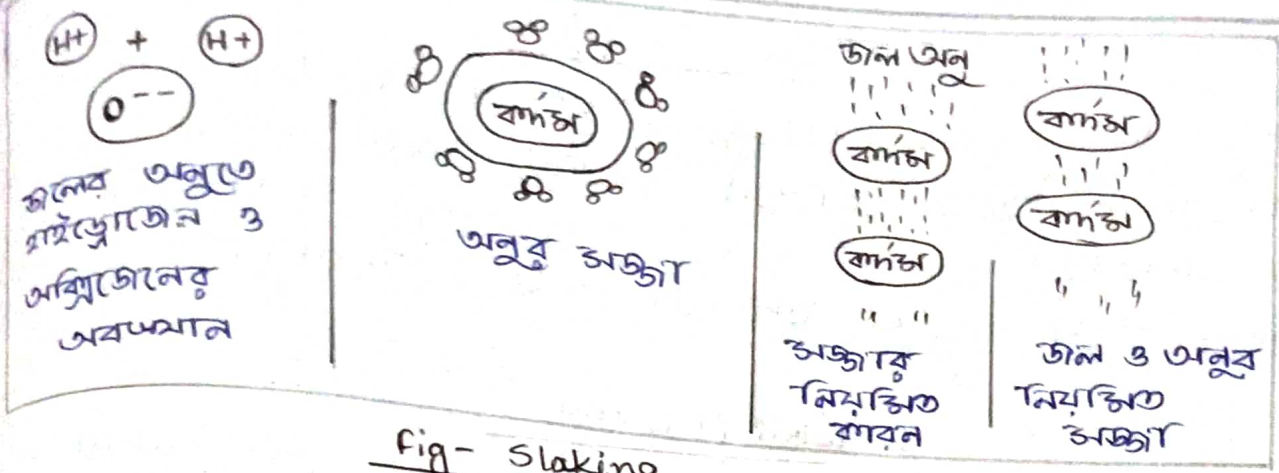 H+ + H+
O--
জলের অনুতে
হাইড্রোজেন ও
অক্সিজেনের
অবস্থান
কর্দম
অনুর সজ্জা
জল অনু
কর্দম
কর্দম
সজ্জার
নিয়মিত
কারন
কর্দম
কর্দম
জল ও অনুর
নিয়মিত
সজ্জা
Fig- Slaking